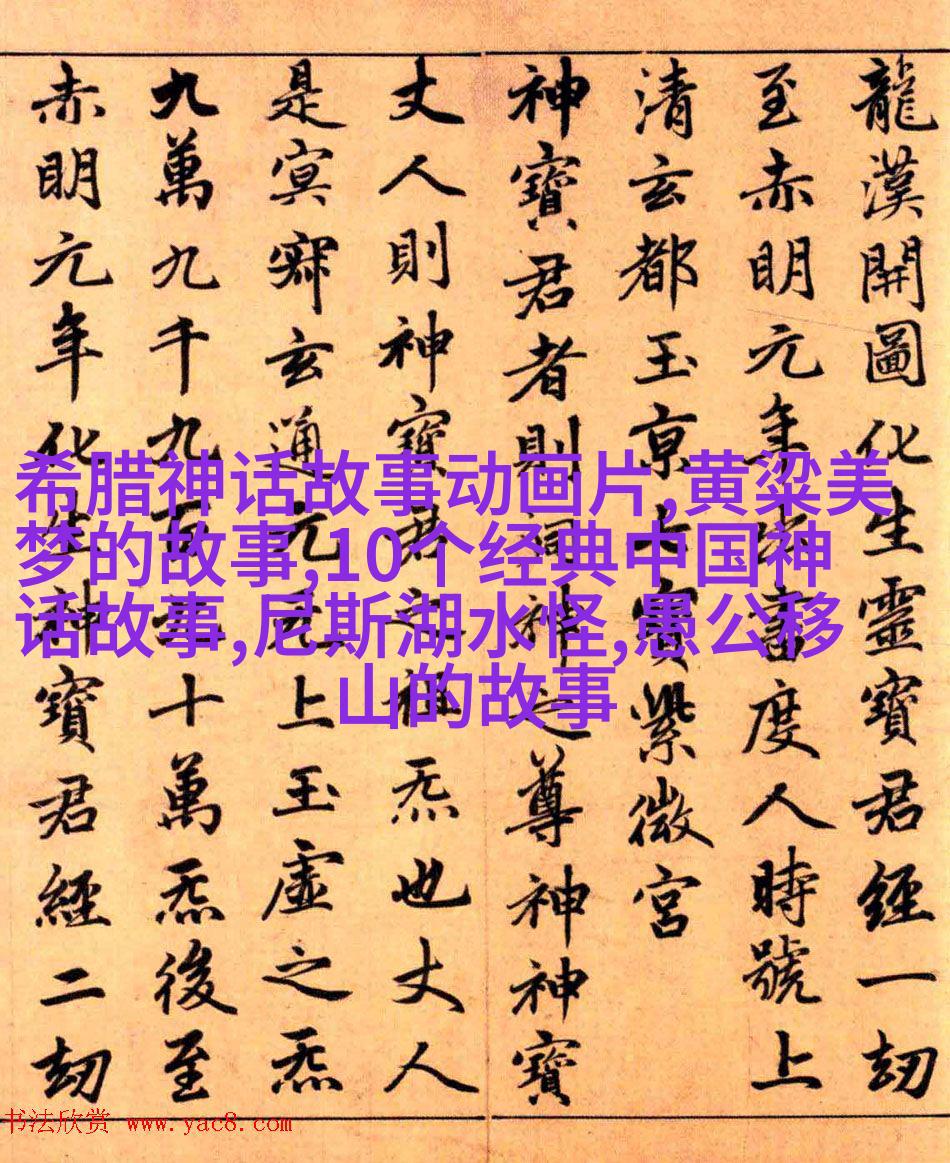 龍漢開圖化生靈寶君經一劫
至赤明元年出書度人時號上
清玄都玉京七寶紫微宮
神寶君者則洞神之尊神神寶
丈人則神寶君之祖炁也丈人
是冥寂玄通元无上玉虛之炁
九萬九千九百九十萬炁後至
赤明元年化生神寶君經二劫
希腊神话故事动画片,黄粱美
梦的故事,10个经典中国神
话故事,尼斯湖水怪,愚公移
山的故事
书法欣赏 www.yac8.com